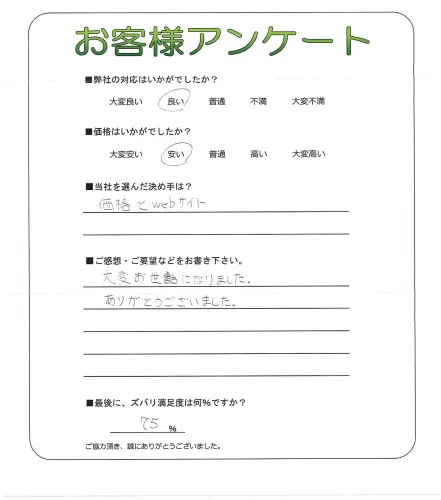 お客様アンケート
■弊社の対応はいかがでしたか？
大変良い 良い 普通 不満 大変不満
■価格はいかがでしたか？
大変安い 安い 普通 高い 大変高い
■当社を選んだ決め手は？
価格とwebサイト
■ご感想・ご要望などをお書き下さい。
大変お世話になりました。
ありがとうございました。
■最後に、ズバリ満足度は何％ですか？
75 ％
ご協力頂き、誠にありがとうございました。